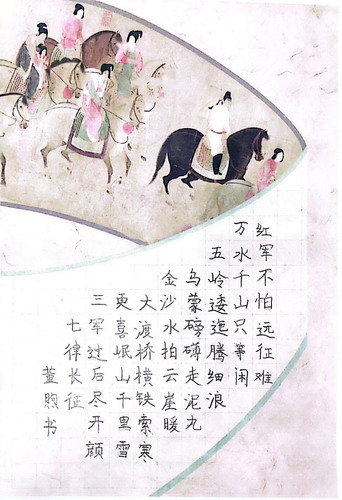 红军不怕远征难
万水千山只等闲
五岭逶迤腾细浪
乌蒙磅礴走泥丸
金沙水拍云崖暖
大渡桥横铁索寒
更喜岷山千里雪
三军过后尽开颜
七律长征
董煦书